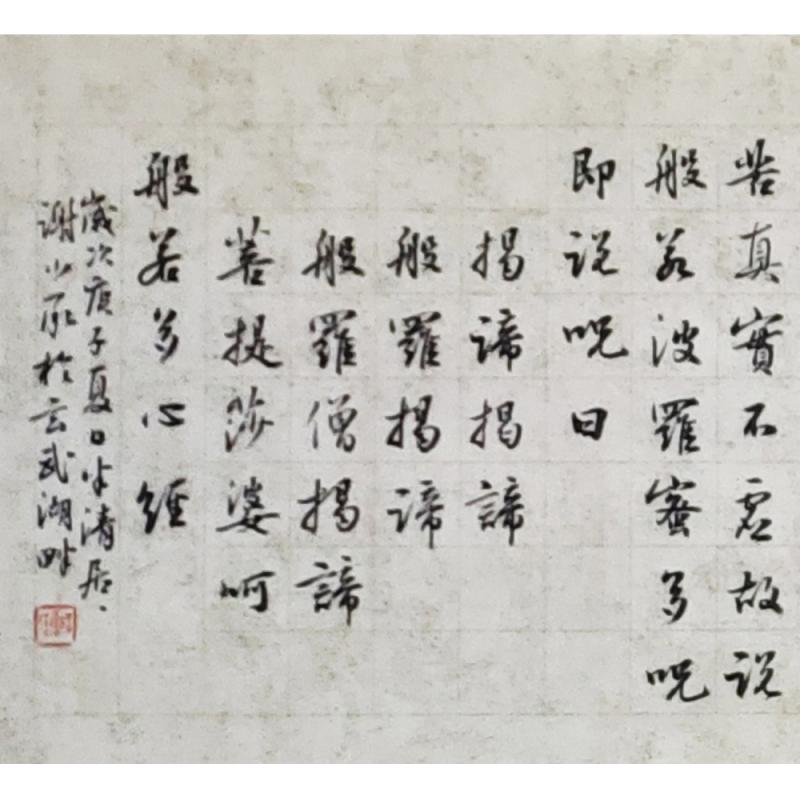 苦真實不虛故说
般若波羅蜜多呪
即说呪曰
揭諦揭諦
般羅揭諦
般羅僧揭諦
菩提莎婆呵
般若多心經
歲次庚子夏日半清居
謝小於玄武湖畔